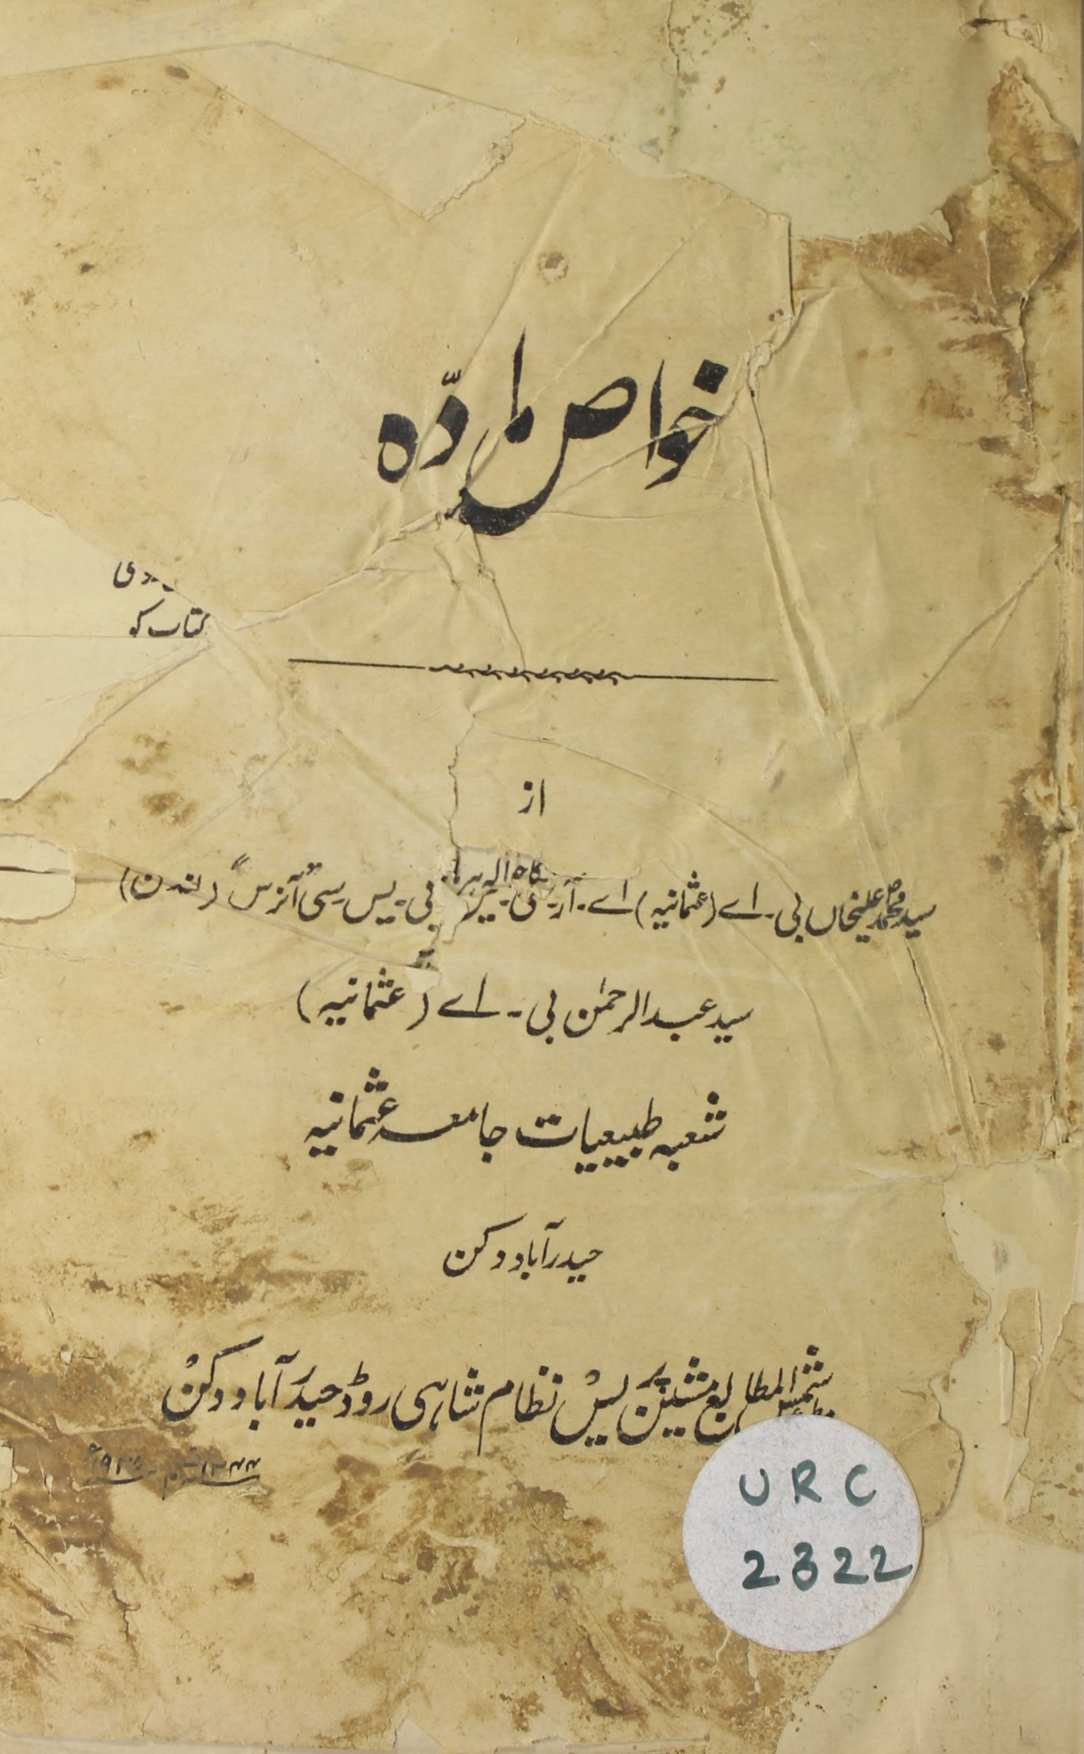 خواص مادّہ
کتاب کو
از
سید محمد علیخاں بی۔ اے (عثمانیہ) اے۔ آر۔ بی۔ یس۔ سی آنرس (لندن)
سید عبدالرحمٰن بی۔ اے (عثمانیہ)
شعبہ طبیعیات جامعہ عثمانیہ
حیدرآباد دکن
شمس المطابع مشین پریس نظام شاہی روڈ حیدرآباد دکن
URC
2322